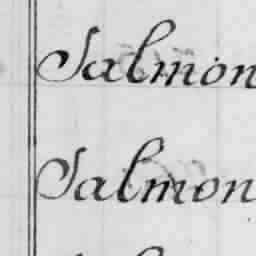 Salmon
Salmon